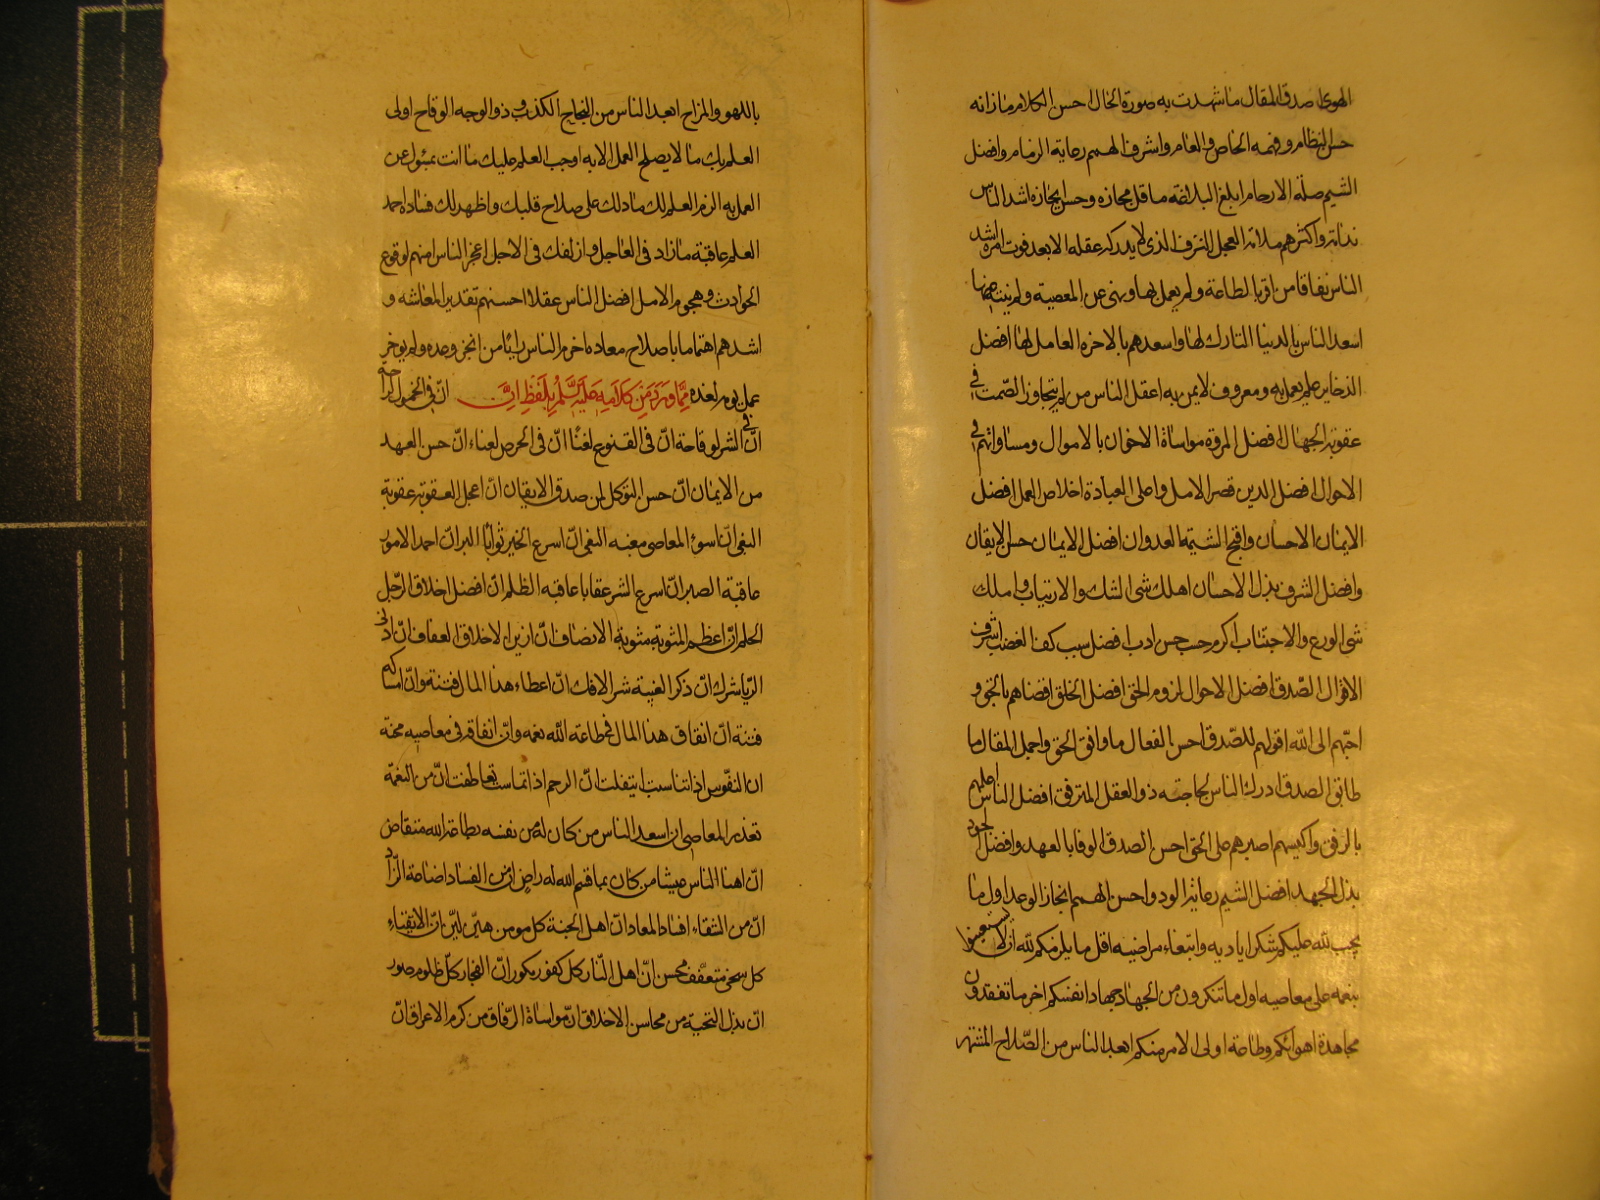 الهوى اصدق المقال ما شهدت به صورة الحال احسن الكلام ما زانه
حسن النظام وفهمه الخاص والعام واشرف الهمم رعاية الزمام وافضل
الشيم صلة الارحام ابلغ البلاغة ما قل مجازه وحسن ايجازه اشد الناس
ندامة واكثرهم ملامة العجل النزق الذى لا يدركه عقله الا بعد فوت امره اشد
الناس نفاقا من امر بالطاعة ولم يعمل بها ونهى عن المعصية ولم ينته عنها
اسعد الناس بالدنيا التارك لها واسعدهم بالاخرة العامل لها افضل
الذخاير علم يعمل به ومعروف لا يمن به اعقل الناس من لم يتجاوز الصّمت فى
عقوبة الجهال افضل المروة مواساة الاخوان بالاموال ومساواتهم فى
الاحوال افضل الدين قصر الامل واعلى العبادة اخلاص العمل افضل
الايمان الاحسان واقبح الشيمة العدوان افضل الايمان حسن الايقان
وافضل الشرف بذل الاحسان اهلك شى الشك والارتياب واملك
شى الورع والاجتناب اكرم حسب حسن ادب افضل سبب كف الغضب اشرف
الاقوال الصّدق افضل الاحوال لزوم الحق افضل الخلق اقضاهم بالحق و
احبّهم الى اللّه اقولهم للصّدق احسن الفعال ما وافق الحق واجمل المقال ما
طابق الصدق ادرك الناس لحاجته ذو العقل المترفق افضل الناس اعلمهم
بالرفق واكيسهم اصبرهم على الحق احسن الصدق الوفا بالعهد وافضل الجود
بذل الجهد افضل الشيم رعاية الود واحسن الهمم انجاز الوعد اول ما
يجب لله عليكم شكر اياديه وابتغاء مراضيه اقل ما يلزمكم للّه ان لا تستعينوا
بنعمه على معاصيه اول ما تنكرون من الجهاد جهاد انفسكم اخر ما تفقدون
مجاهدة اهوائكم وطاعة اولى الامر منكم ابعد الناس من الصّلاح المشتهر
باللهو والمزاح ابعد الناس من النجاح الكذوب ذو الوجه الوقاح اولى
العلم بك ما لا يصلح العمل الا به اوجب العلم عليك ما انت مسئول عن
العمل به الزم العلم لك ما دلك على صلاح قلبك واظهر لك فساده احمد
العلم عاقبة ما زاد فى العاجل وازلفك فى الاجل اعجز الناس امنهم لوقوع
الحوادث وهجوم الامل افضل الناس عقلا احسنهم تقدير المعاشه و
اشدهم اهتماما باصلاح معاده احزم الناس رايًا من انجز وعده ولم يوخر
عمل يوم لغده مِمَّا وَرَدَ مِنْ كَلَامِهِ عَلَيْهِ السَّلَمُ بِلَفْظِ اِنَّ انّ فى الخمول لراحة
انّ فى الشر لوقاحة انّ فى القنوع لغنًا انّ فى الحرص لعناء انّ حسن العهد
من الايمان انّ حسن التوكل لمن صدق الايقان انّ اعجل العقوبة عقوبة
البغى انّ اسوء المعاصى مغبه البغى انّ اسرع الخير ثوابًا البر انّ احمد الامور
عاقبة الصبر انّ اسرع الشر عقابا عاقبه الظلم انّ افضل اخلاق الرّجل
الحلم انّ اعظم المثوبة مثوبة الانصاف انّ ازين الاخلاق العفاف انّ ادنى
الرّيا شرك انّ ذكر الغيبة شر الافك انّ اعطاء هذا المال فتنة وانّ امساكه
فتنة انّ انفاق هذا المال فى طاعة الله نعمه وانّ انفاقه فى معاصيه محنة
ان النفوس اذا تناسبت ايتفلت انّ الرحم اذا تماست تعاطفت انّ من النعمّة
تعذر المعاصى ان اسعد الناس من كان له من نفسه بطاعة الله متقاض
انّ اهنا الناس عيشا من كان بما قسم الله له راض ان من الفساد اضاعة الزّاد
انّ من الشقاء افساد المعاد انّ اهل الجنة كل مومن هيّن ليّن انّ الاتقياء
كل سخى متعفّف محسن انّ اهل النّار كل كفور مكور انّ الفجار كلّ ظلوم
انّ بذل التحية من محاسن الاخلاق انّ مواساة الرّفاق من كرم الاعراق انّ